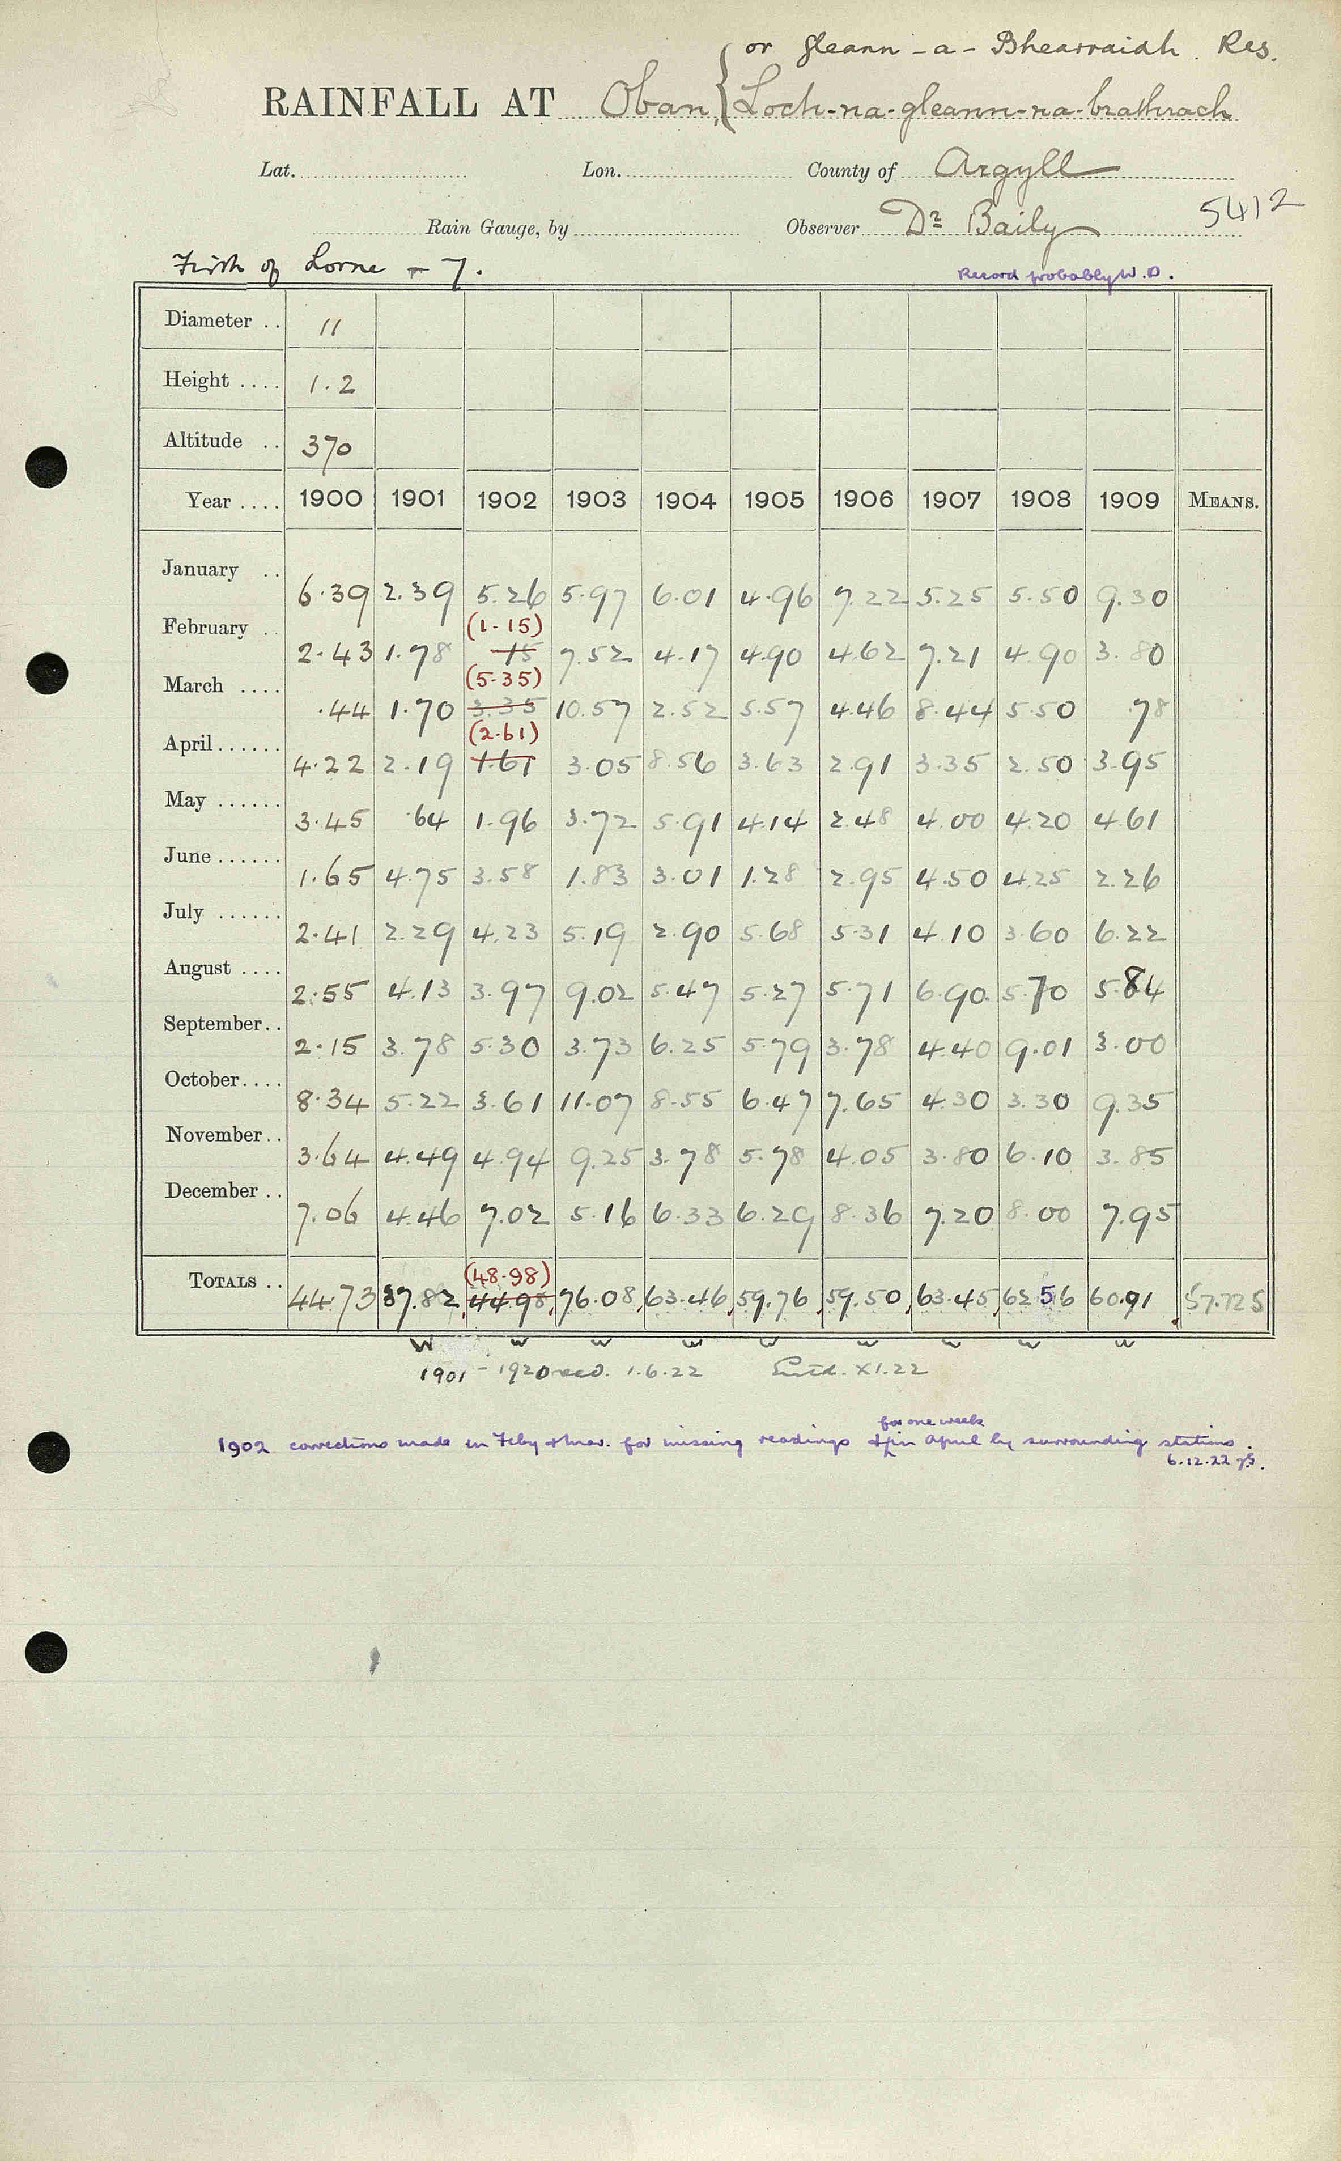 or Gleann-a-Bhearraidh Res.
RAINFALL AT Oban, { Loch-na-gleann-na-brathrach
Lat. Lon. County of Argyll
Rain Gauge, by Observer Dr Baily 5412
Firth of Lorne - 7. Record probably W.D.
Diameter .. 11
Height .... 1.2
Altitude .. 370
Year .... 1900 1901 1902 1903 1904 1905 1906 1907 1908 1909 MEANS.
January .. 6.39 2.39 5.26 5.97 6.01 4.96 7.22 5.25 5.50 9.30
(1.15)
February .. 2.43 1.78 .15 7.52 4.17 4.90 4.62 7.21 4.90 3.80
(5.35)
March .... .44 1.70 3.35 10.57 2.52 5.57 4.46 8.44 5.50 .78
(2.61)
April...... 4.22 2.19 1.61 3.05 8.56 3.63 2.91 3.35 2.50 3.95
May ...... 3.45 .64 1.96 3.72 5.91 4.14 2.48 4.00 4.20 4.61
June...... 1.65 4.75 3.58 1.83 3.01 1.28 2.95 4.50 4.25 2.26
July ...... 2.41 2.29 4.23 5.19 2.90 5.68 5.31 4.10 3.60 6.22
August .... 2.55 4.13 3.97 9.02 5.47 5.27 5.71 6.90 5.70 5.84
September.. 2.15 3.78 5.30 3.73 6.25 5.79 3.78 4.40 9.01 3.00
October.... 8.34 5.22 3.61 11.07 8.55 6.47 7.65 4.30 3.30 9.35
November.. 3.64 4.49 4.94 9.25 3.78 5.78 4.05 3.80 6.10 3.85
December .. 7.06 4.46 7.02 5.16 6.33 6.29 8.36 7.20 8.00 7.95
(48.98)
TOTALS .. 44.73 37.82 44.98 76.08 63.46 59.76 59.50 63.45 62.56 60.91 57.725
W W W W W W W W W
1901 - 1920 recd. 1.6.22 Entd. XI.22
for one week
1902 corrections made in Feby & Mar. for missing readings & in April by surrounding stations.
6.12.22